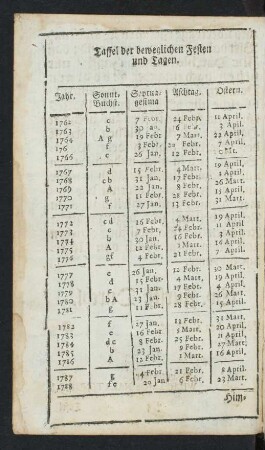 Taffel der beweglichen Festen
und Tagen.
Jahr. Sonnt. Buchst. Septuagesima Aschtag. Ostern.
1762 c 7 Febr. 24 Febr. 11 April.
1763 b 30 Jan. 16 Febr. 3 April.
1764 A g 19 Febr 7 Mart. 22 April
176 f 3 Febr. 20 Febr. 7 April,
1766 e 26 Jan, 12 Febr.
1767 d 15 Febr. 4 Mart. 19 April,
1768 cb 31 Jan. 17 Febr. 3 April.
1769 A 22 Jan. 8 Febr. 26 Mart.
1770 g 11 Febr. 28 Febr. 15 April
1771 f 27 Jan. 13 Febr. 31 Mart.
1772 ed 16 Febr, 4 Mart, 19 April.
1773 c 7 Febr, 24 Febr. 11 April.
1774 b 30 Jan. 16 Febr. 3 April.
1775 A 12 Febr. 1 Mart. 16 April.
1776 gf 4 Febr, 21 Febr. 7 April.
1777 e 26 Jan. 12 Febr. 30 Mart.
1778 d 15 Febr. 4 Mart, 19 April.
1779 c 31 Jan. 17 Febr. 4 April.
1780 b A 23 Jan. 9 Febr. 26 Mart.
1781 g 11 Febr. 28 Febr, 15 April,
1782 f 27 Jan. 13 Febr. 31 Mart.
1783 e 16 Febr 5 Mart, 20 April.
1784 dc 8 Febr 25 Febr. 11 April.
1785 b 23 Jan. 9 Febr. 27 Mart.
1786 A 12 Febr. 1 Mart. 16 April.
1787 g 4 Febr. 21 Febr. 8 April.
1788 fe 20 Jan 6 Febr. 23 Mart.
Him-